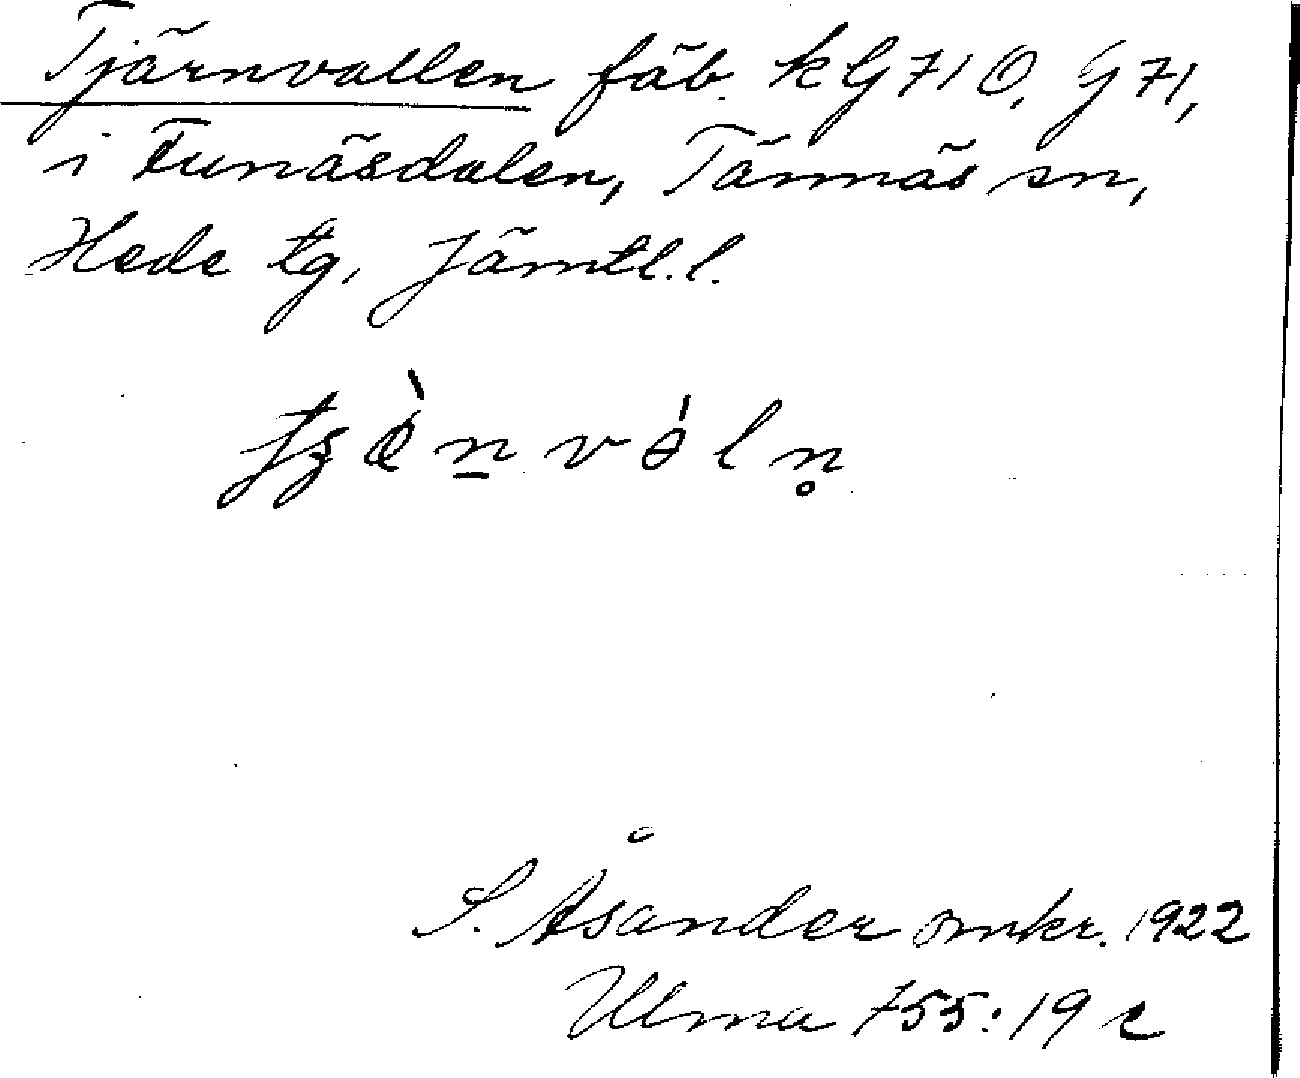 Tjärnvallen fäb. kG710, G71,
i Funäsdalen, Tännäs sn,
Hede tg, Jämtl.l.
S. Åsander omkr. 1922
Ulma 755:19 c